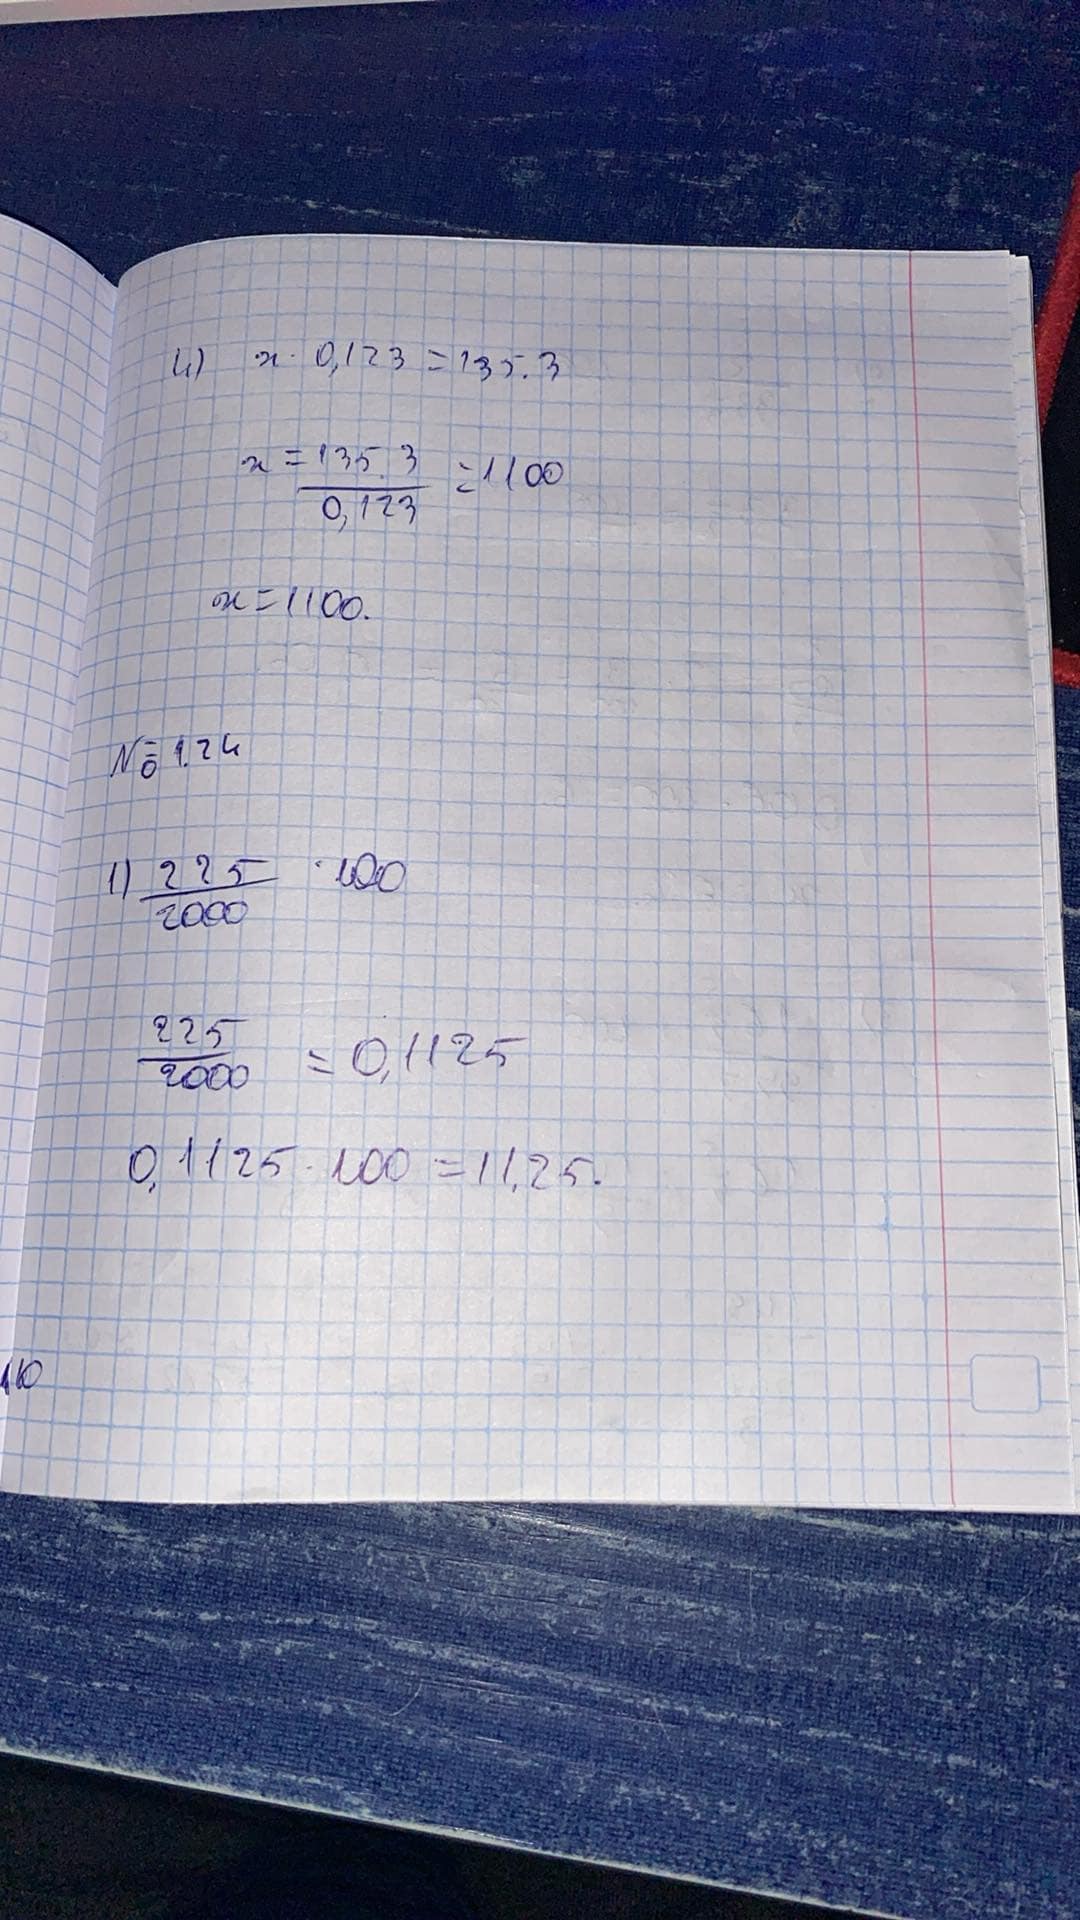 4) x · 0,123 = 135.3
x = 135.3 / 0,123 = 1100
x = 1100.
№ 1.24
1) 225 / 2000 · 100
225 / 2000 = 0,1125
0,1125 · 100 = 11,25.